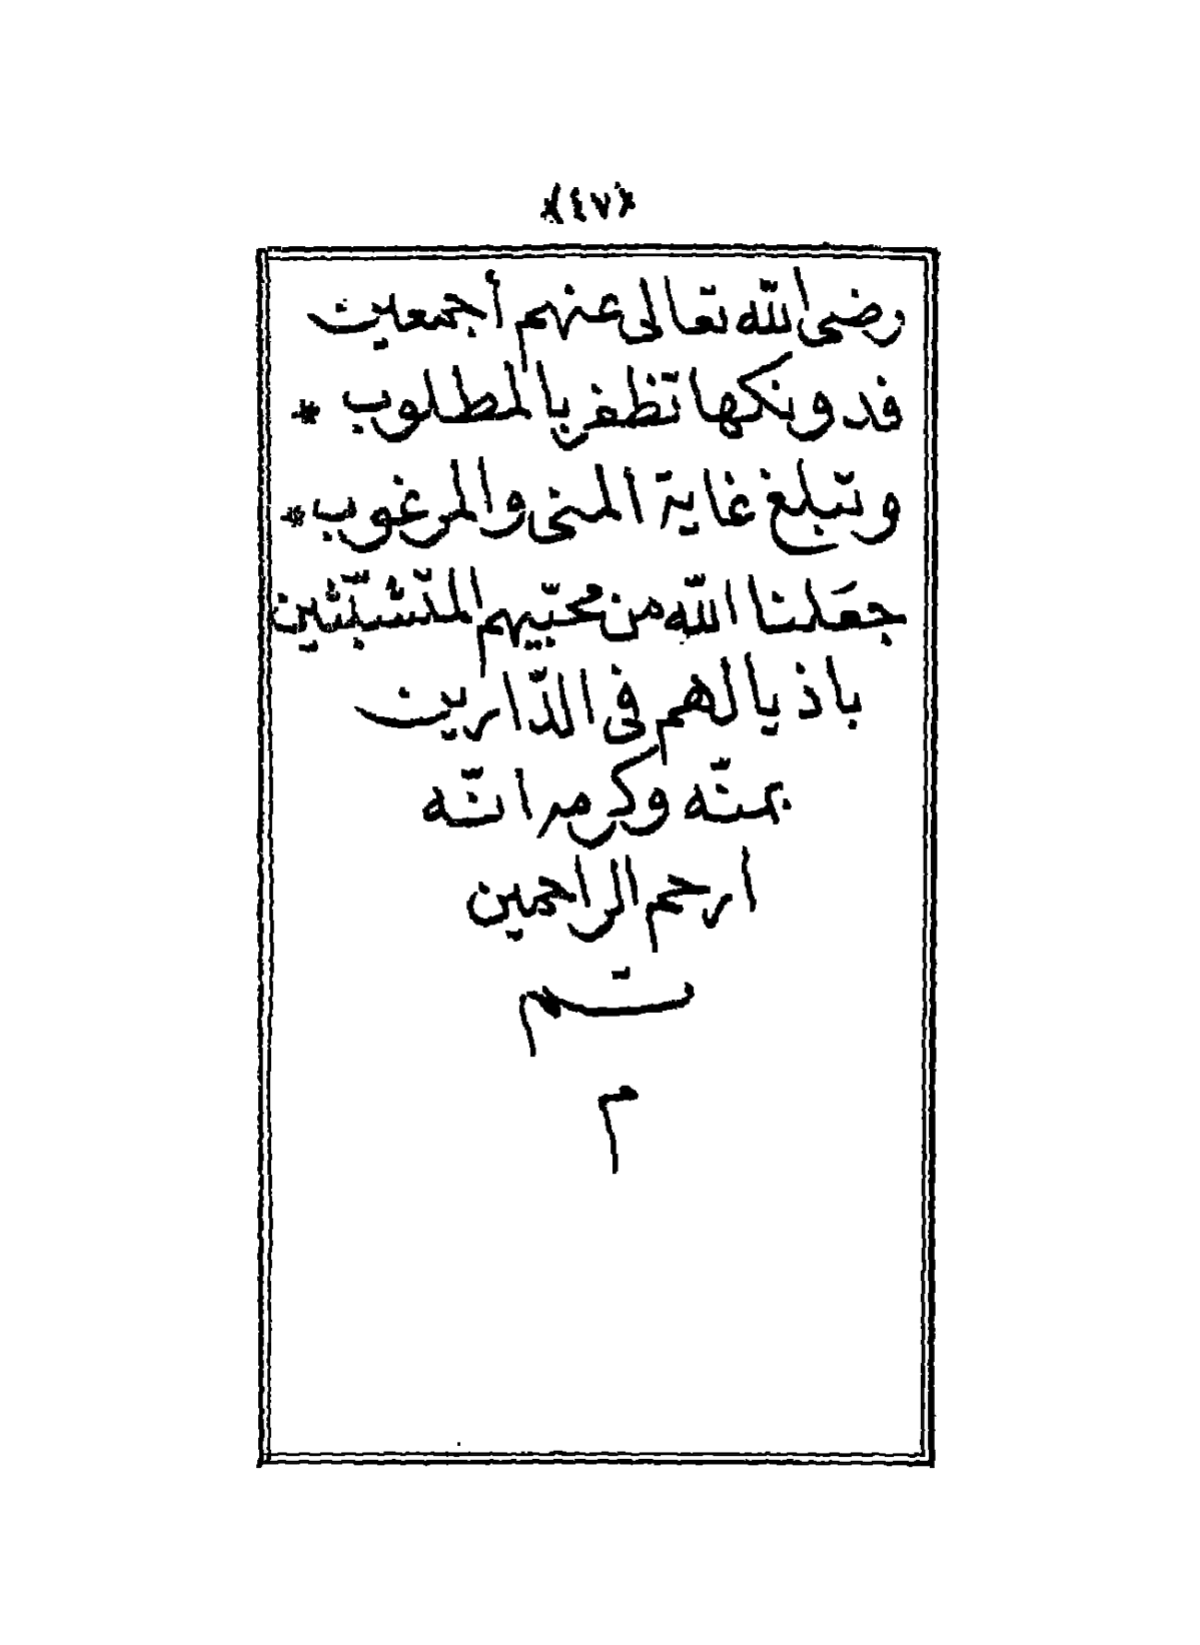 ﴿٤٧﴾
رضى اللّه تعالى عنهم أجمعين
فدونكها تظفر بالمطلوب *
وتبلغ غاية المنى والمرغوب *
جعَلنا اللّه من محبّيهم المتّشبّثين
باذيالهم فى الدّارين
بمنّه وكرمه انّه
ارحم الراحمين
تم
م